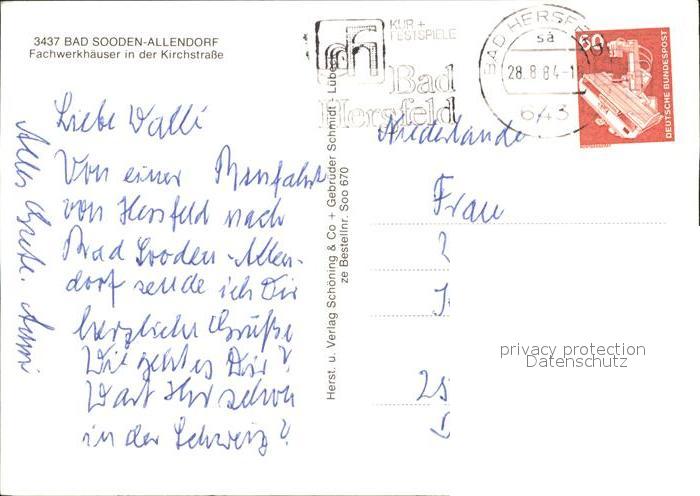 3437 BAD SOODEN-ALLENDORF
Fachwerkhäuser in der Kirchstraße
KUR +
FESTSPIELE
Bad
Hersfeld
BAD HERSFE
sa
28.8.84-1
643
60
DEUTSCHE BUNDESPOST
Liebe Walli
Von einer Busfahrt
von Hersfeld nach
Bad Sooden-Allen-
dorf sende ich Dir
herzliche Grüße
Wie geht es Dir?
Wart Ihr schon
in der Schweiz?
Alles Gute. Anni
Herst. u. Verlag Schöning & Co + Gebrüder Schmidt · Lübeck
ze Bestellnr. Soo 670
Niederlande
Frau
privacy protection
Datenschutz